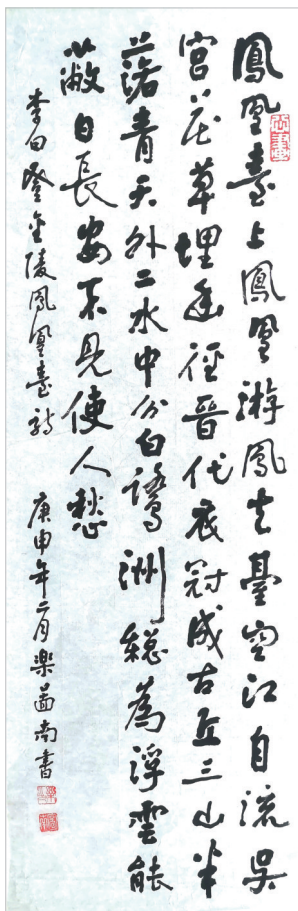 鳳凰臺上鳳凰游鳳去臺空江自流吳
宮花草埋幽徑晉代衣冠成古丘三山半
落青天外二水中分白鷺洲總為浮雲能
蔽日長安不見使人愁
李白登金陵鳳凰臺詩 庚申年月樂啚南書